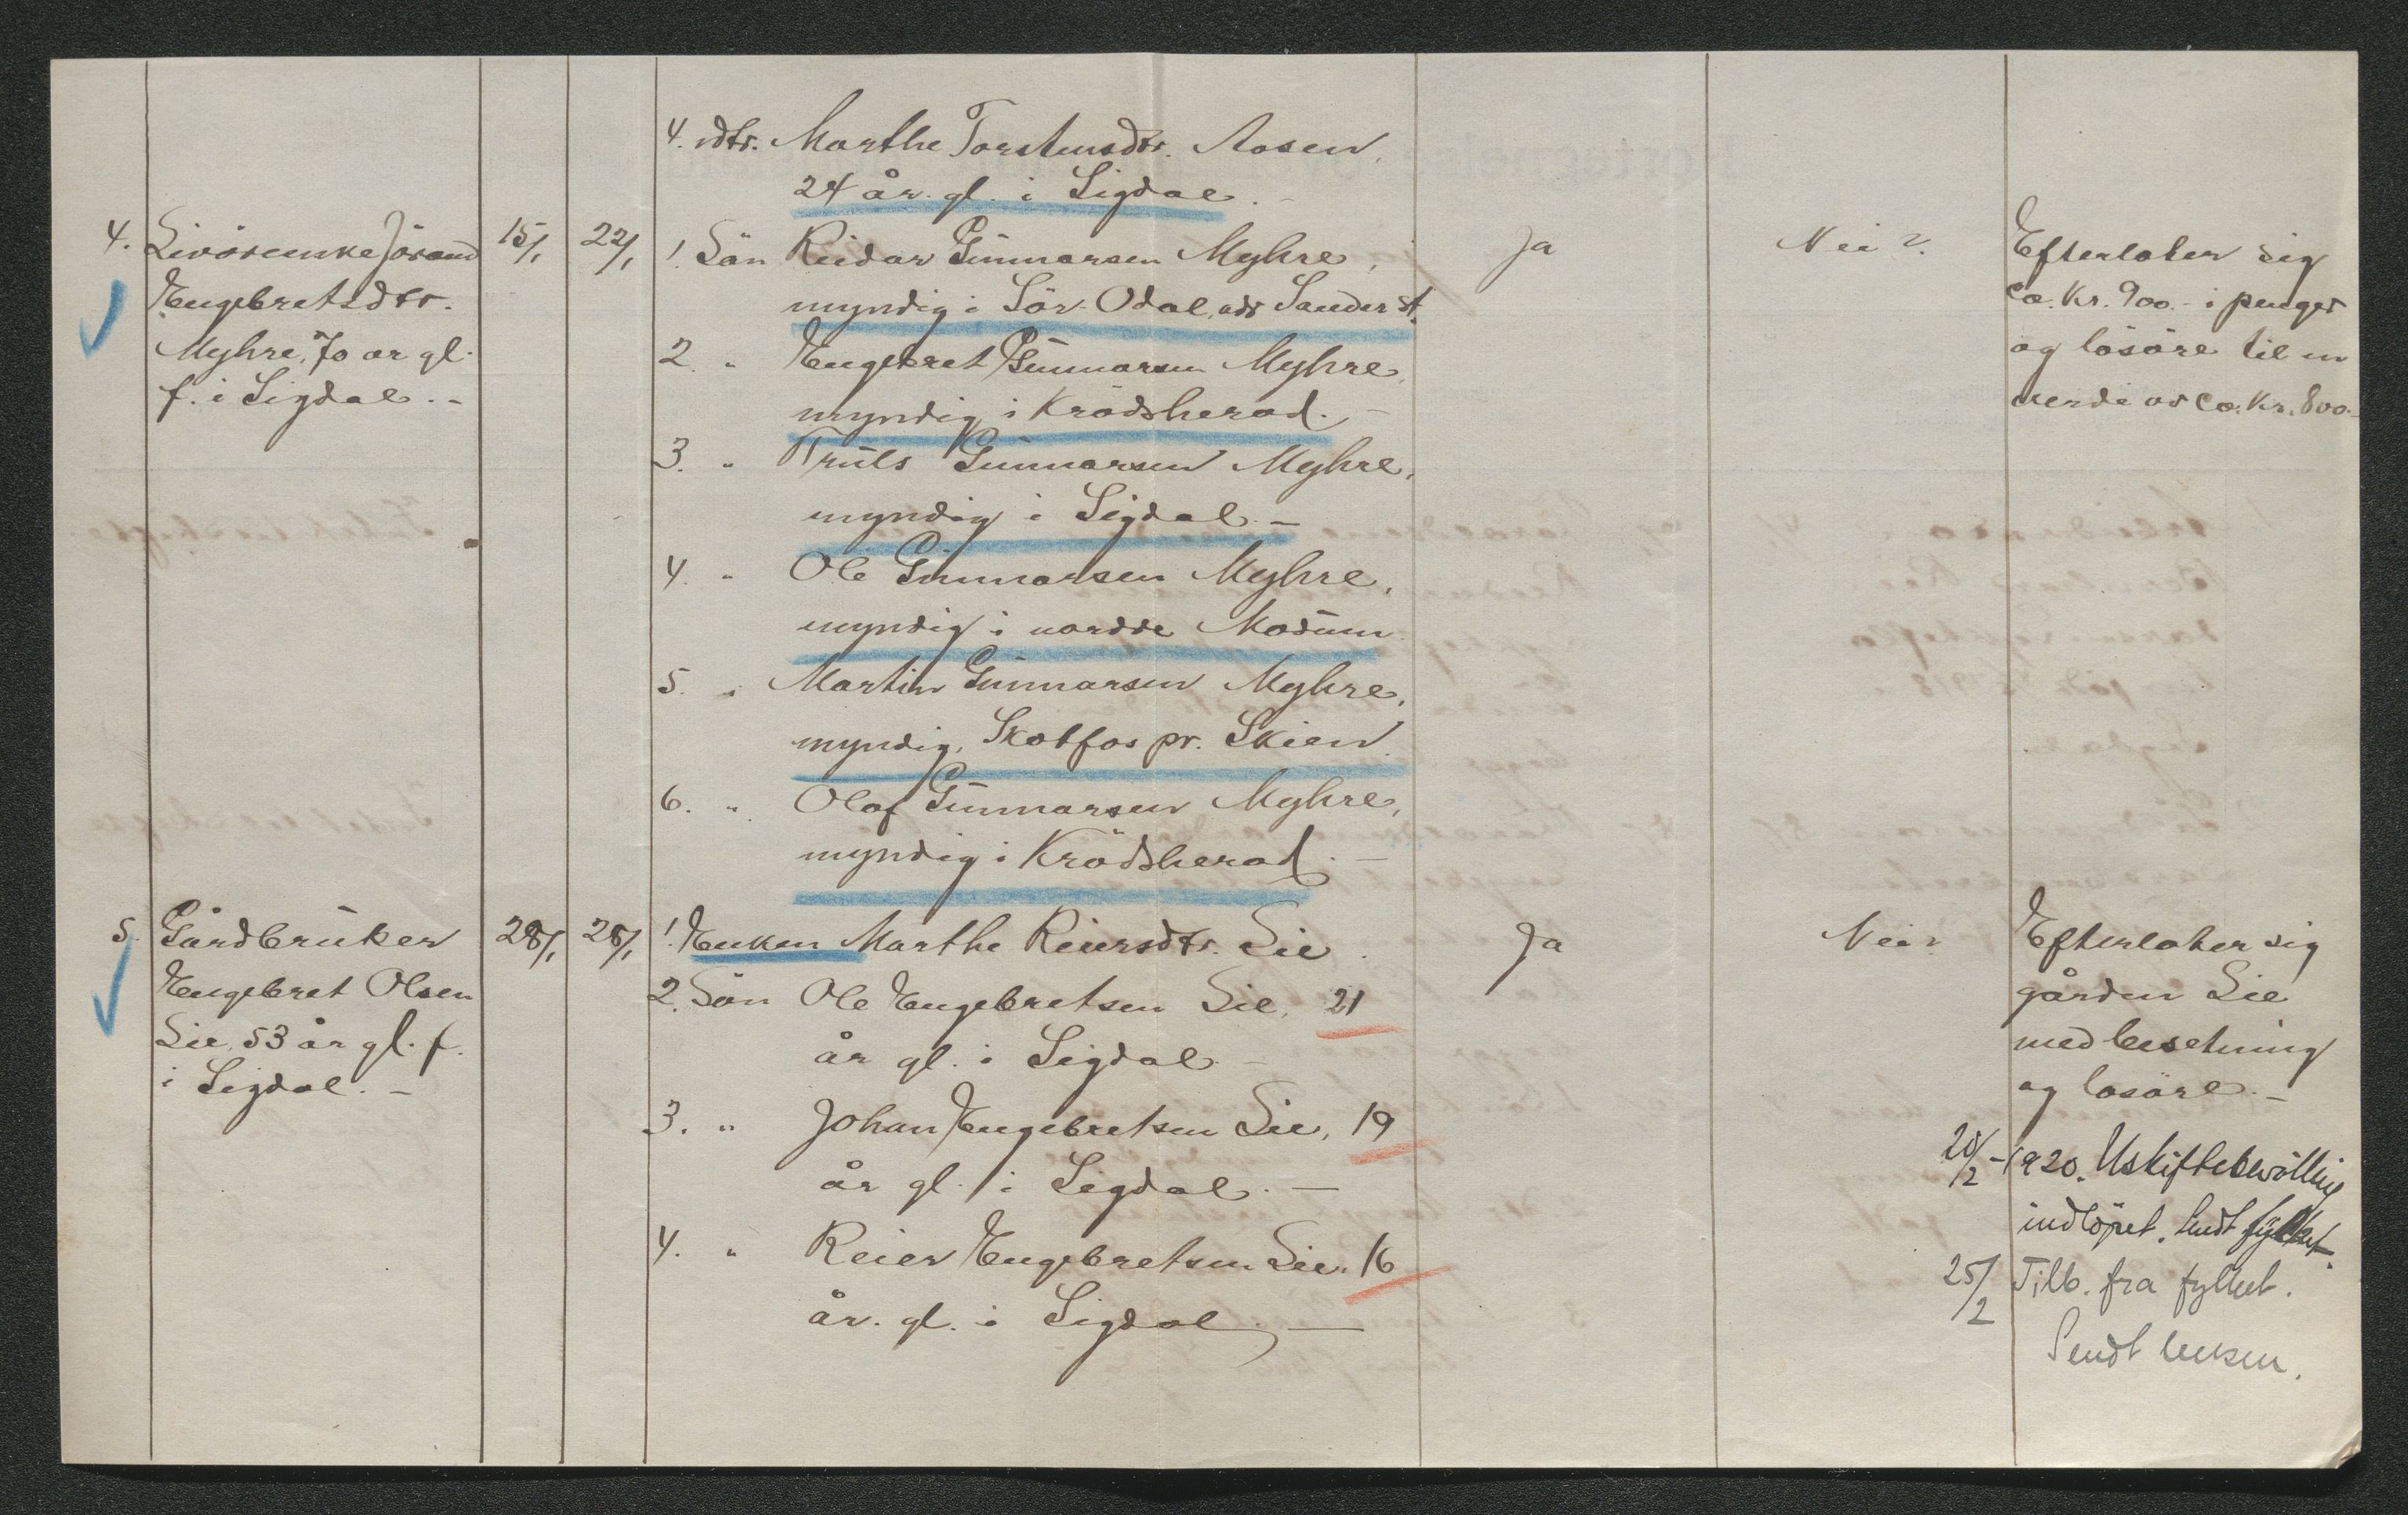 4. dtr. Marthe Torstensdtr. Aasen,
24 år gl. i Sigdal.-
4. Livörenke Jörand
Engebretsdtr.
Myhre, 70 ar gl.
f. i Sigdal.-
15/1
22/1
1. Sön Reidar Gunnarsen Myhre,
myndig i Sör-Odal, adr Sander st.
2. " Engebret Gunnarsen Myhre,
myndig i Krödsherad.-
3. " Truls Gunnarsen Myhre,
myndig i Sigdal.-
4. " Ole Gunnarsen Myhre,
myndig i nordre Modum.
5. " Martin Gunnarsen Myhre,
myndig, Skotfos pr. Skien.
6. " Olaf Gunnarsen Myhre,
myndig i Krödsherad.-
Ja
Nei?
Efterlater sig
ca. Kr. 900.- i penger
og lösöre til en
verdi av ca. Kr. 800.-
5. Gårdbruker
Engebret Olsen
Lie, 53 år gl. f.
i Sigdal.-
28/1
28/1
1. Enken Marthe Reiersdtr. Lie.
2. Sön Ole Engebretsen Lie, 21
år gl. i Sigdal.-
3. " Johan Engebretsen Lie, 19
år gl. i Sigdal.-
4. " Reier Engebretsen Lie, 16
år. gl. i Sigdal.-
Ja
Nei?
Efterlater sig
gården Lie
med besetning
og lösöre.-
20/2-1920. Uskiftebevilling
indlöpet. Sendt fylket.
25/2 Tilb. fra fylket.
Sendt lensm.